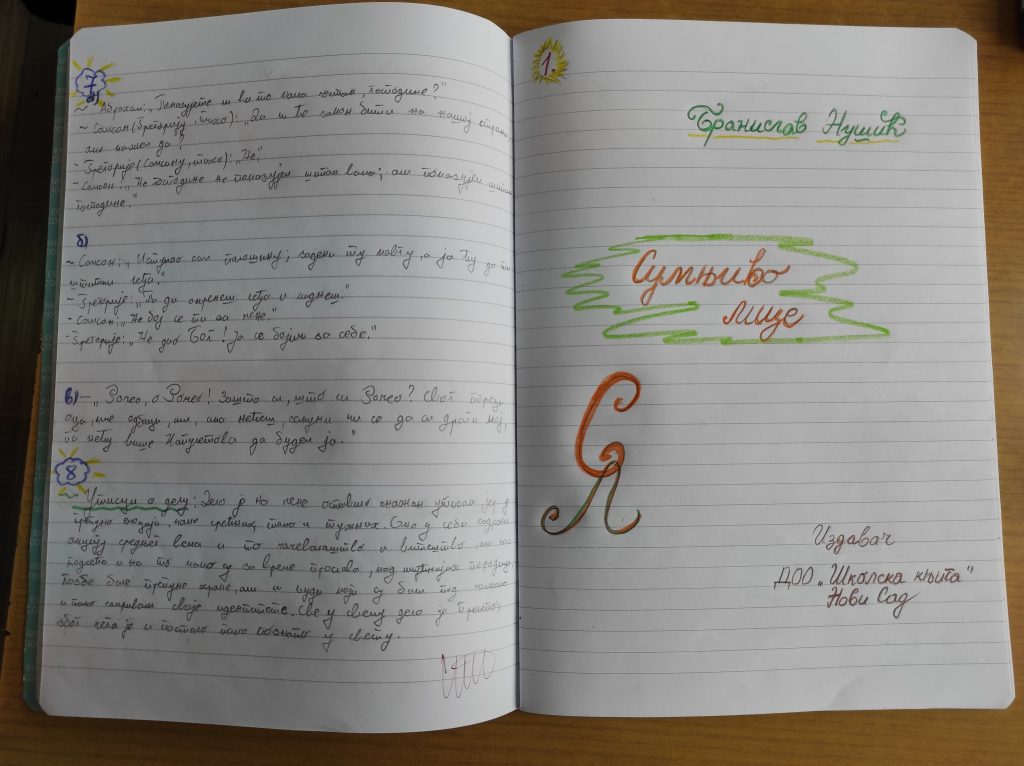 7
а)
~ Абрахам: „Показујете ли ви то нама шипак, господине?"
~ Самсон (Грегорију, тихо): „Да ли ће закон бити на нашој страни
ако кажем да?"
- Грегорије (Самсону, тихо): „Не."
- Самсон: „Не господине не показујем шипак вама; али показујем шипак
господине."
б)
~ Самсон: „Исукао сам палошину; задени ту кавгу, а ја ћу да ти
штитим леђа."
- Грегорије: „Ти да окренеш леђа и киднеш."
- Самсон: „Не бој се ти за мене."
- Грегорије: „Не дао Бог! Ја се бојим за себе."
в) – „Ромео, о Ромео! Зашто си, што си Ромео? Свог
оца, име одбаци, или, ако нећеш, закуни ми се да си драги мој,
па нећу више Капулетова да будем ја."
8
~ Утисци о делу: Дело је на мене оставило снажан утисак, јер је
препуно емоција, како срећних, тако и тужних. Оно у себи садржи
средњег века и то и витештво, али нас
подсећа и на то како су за време
гозбе биле препуне хране, али и људи који су били под маскама
и тако скривали своје идентитете. Све у свему дело је
због чега је и постало тако познато у свету.
1.
Бранислав Нушић
Сумњиво
лице
СЛ
Издавач
ДОО „Школска књига"
Нови Сад